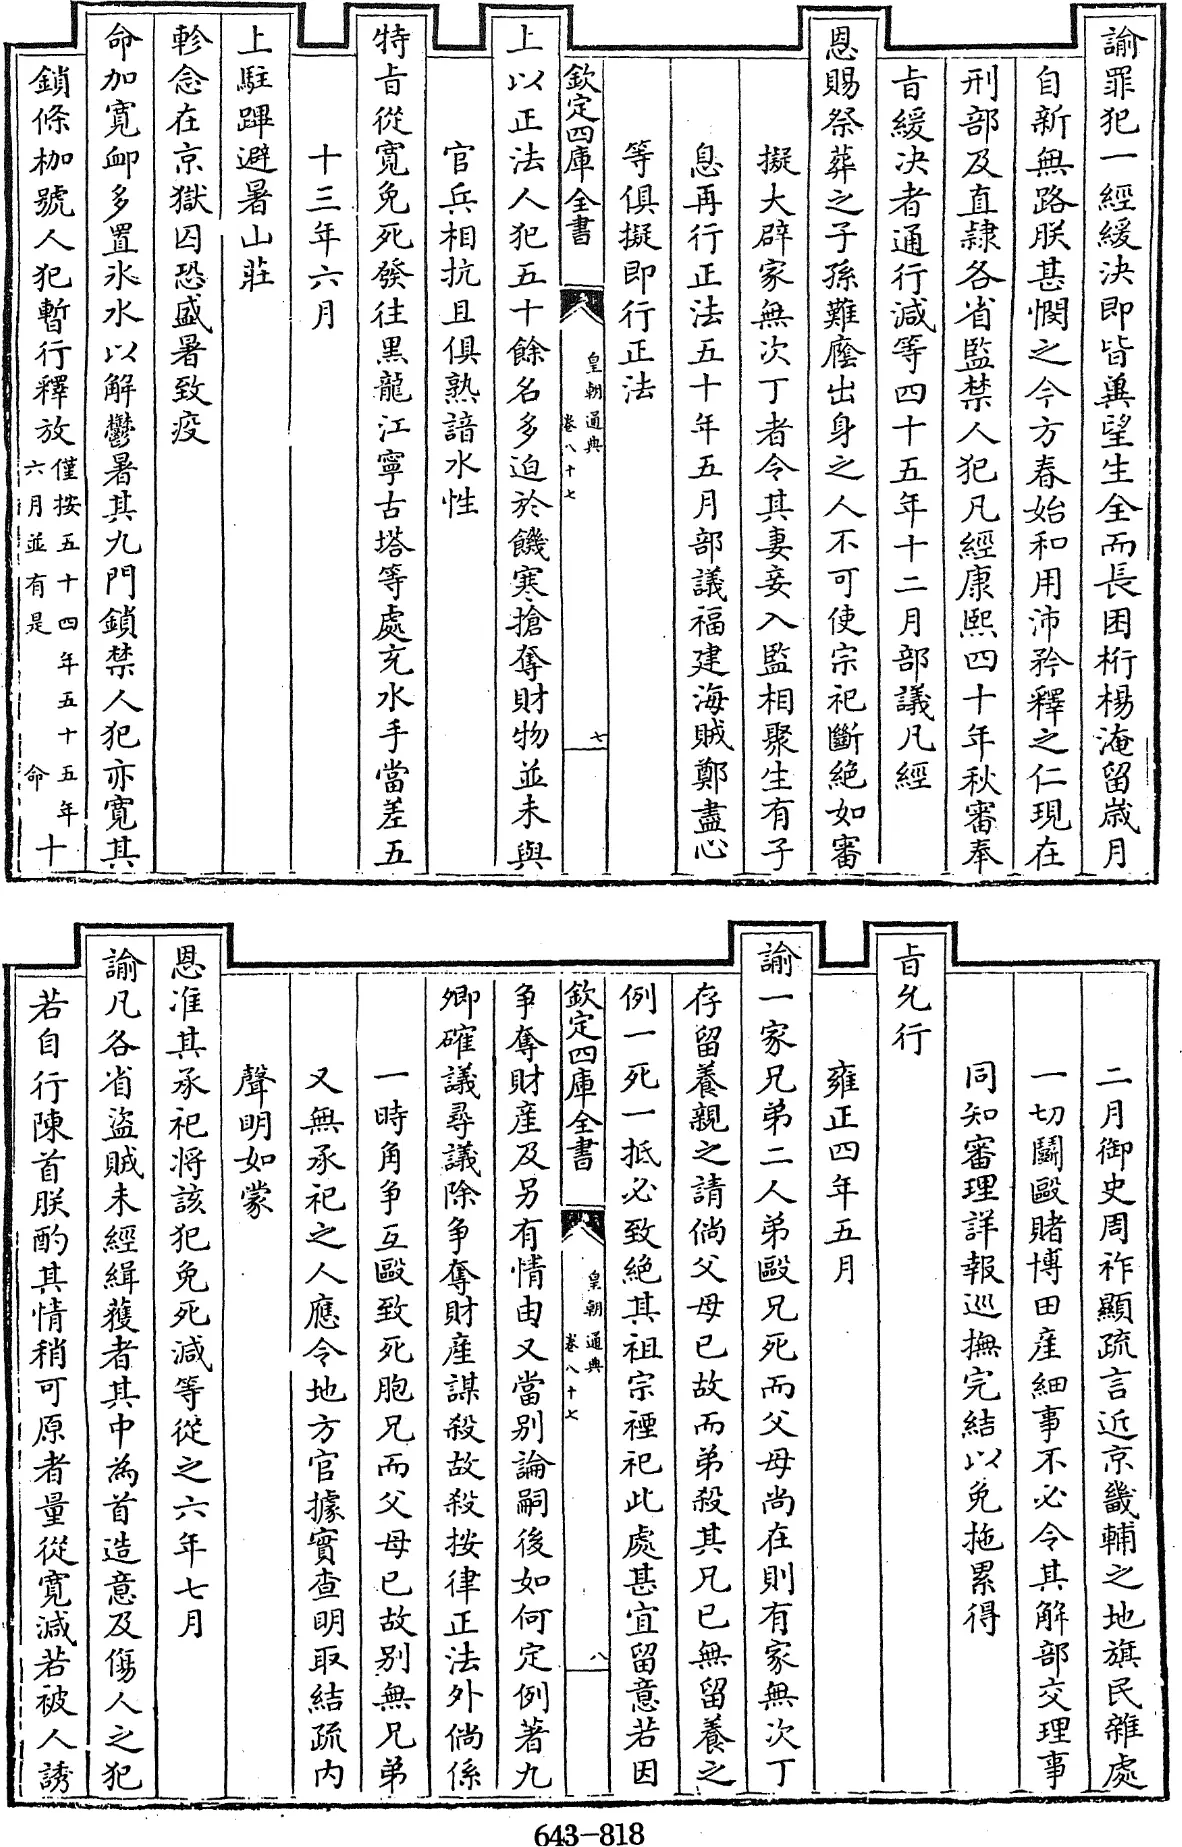 諭罪犯一經緩決即皆冀望生全而長困桁楊淹留歲月
自新無路朕甚憫之今方春始和用沛矜釋之仁現在
刑部及直隷各省監禁人犯凡經康熙四十年秋審奉
㫖緩决者通行減等四十五年十二月部議凡經
恩賜祭葬之子孫難廕出身之人不可使宗祀斷絶如審
擬大辟家無次丁者令其妻妾入監相聚生有子
息再行正法五十年五月部議福建海賊鄭盡心
等俱擬即行正法
欽定四庫全書
皇朝通典
卷八十七
七
上以正法人犯五十餘名多迫於饑寒搶奪財物並未與
官兵相抗且俱熟諳水性
特㫖從寛免死發往黑龍江寧古塔等處充水手當差五
十三年六月
上駐蹕避暑山莊
軫念在京獄囚恐盛暑致疫
命加寛䘏多置氷水以解鬱暑其九門鎖禁人犯亦寛其
鎖條枷號人犯暫行釋放僅按五十四年五十五年六月並有是命十
二月御史周祚顯疏言近京畿輔之地旗民雜處
一切鬬毆賭博田産細事不必令其解部交理事
同知審理詳報巡撫完結以免拖累得
㫖允行
雍正四年五月
諭一家兄弟二人弟毆兄死而父母尚在則有家無次丁
存留養親之請倘父母已故而弟殺其兄已無留養之
例一死一抵必致絶其祖宗禋祀此處甚宜留意若因
欽定四庫全書
皇朝通典
卷八十七
八
争奪財産及另有情由又當别論嗣後如何定例著九
卿確議尋議除争奪財産謀殺故殺按律正法外倘係
一時角争互毆致死胞兄而父母已故别無兄弟
又無承祀之人應令地方官據實查明取結疏内
聲明如蒙
恩准其承祀將該犯免死減等從之六年七月
諭凡各省盜賊未經緝獲者其中為首造意及傷人之犯
若自行陳首朕酌其情稍可原者量從寛減若被人誘
643-818